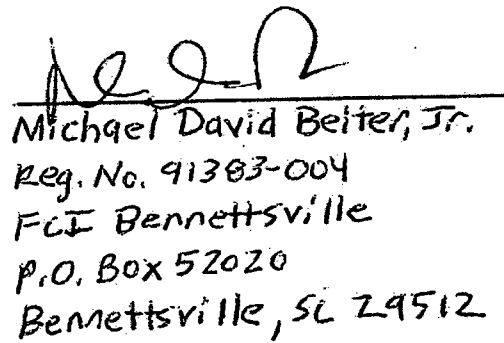 Michael David Beiter, Jr.
Reg. No. 91383-004
FCI Bennettsville
P.O. Box 52020
Bennettsville, SC 29512